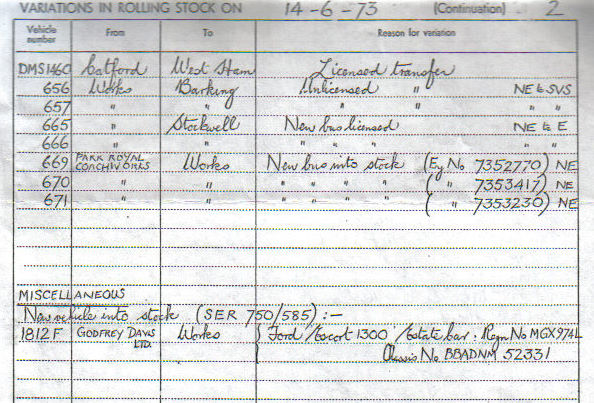 VARIATIONS IN ROLLING STOCK ON 14-6-73 (Continuation) 2
Vehicle number From To Reason for variation
DMS1460 Catford West Ham Licensed transfer
656 Works Barking Unlicensed " NE to SVS
657 " " " " " "
665 " Stockwell New bus licensed NE to E
666 " " " " " " "
669 PARK ROYAL COACHWORKS Works New bus into stock (Eg. No 7352770) NE
670 " " " " " " ( " 7353417) NE
671 " " " " " " ( " 7353230) NE
MISCELLANEOUS
New vehicle into stock (SER 750/585) :-
1812F GODFREY DAVIS LTD. Works } Ford 'Escort 1300' Estate car: Regn No MGX974L
Chassis No BBADNM 52331